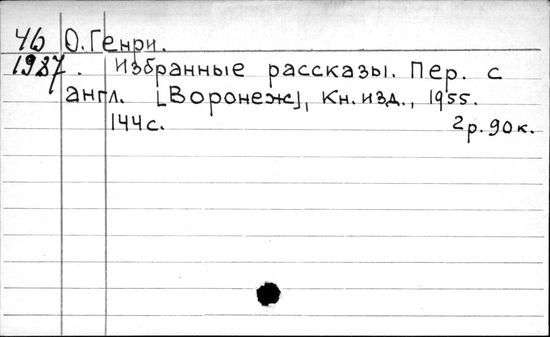 46 О.Генри.
1987. Избранные рассказы. Пер. с
англ. [Воронеж], Кн.изд., 1955.
144с. 2р.90к.